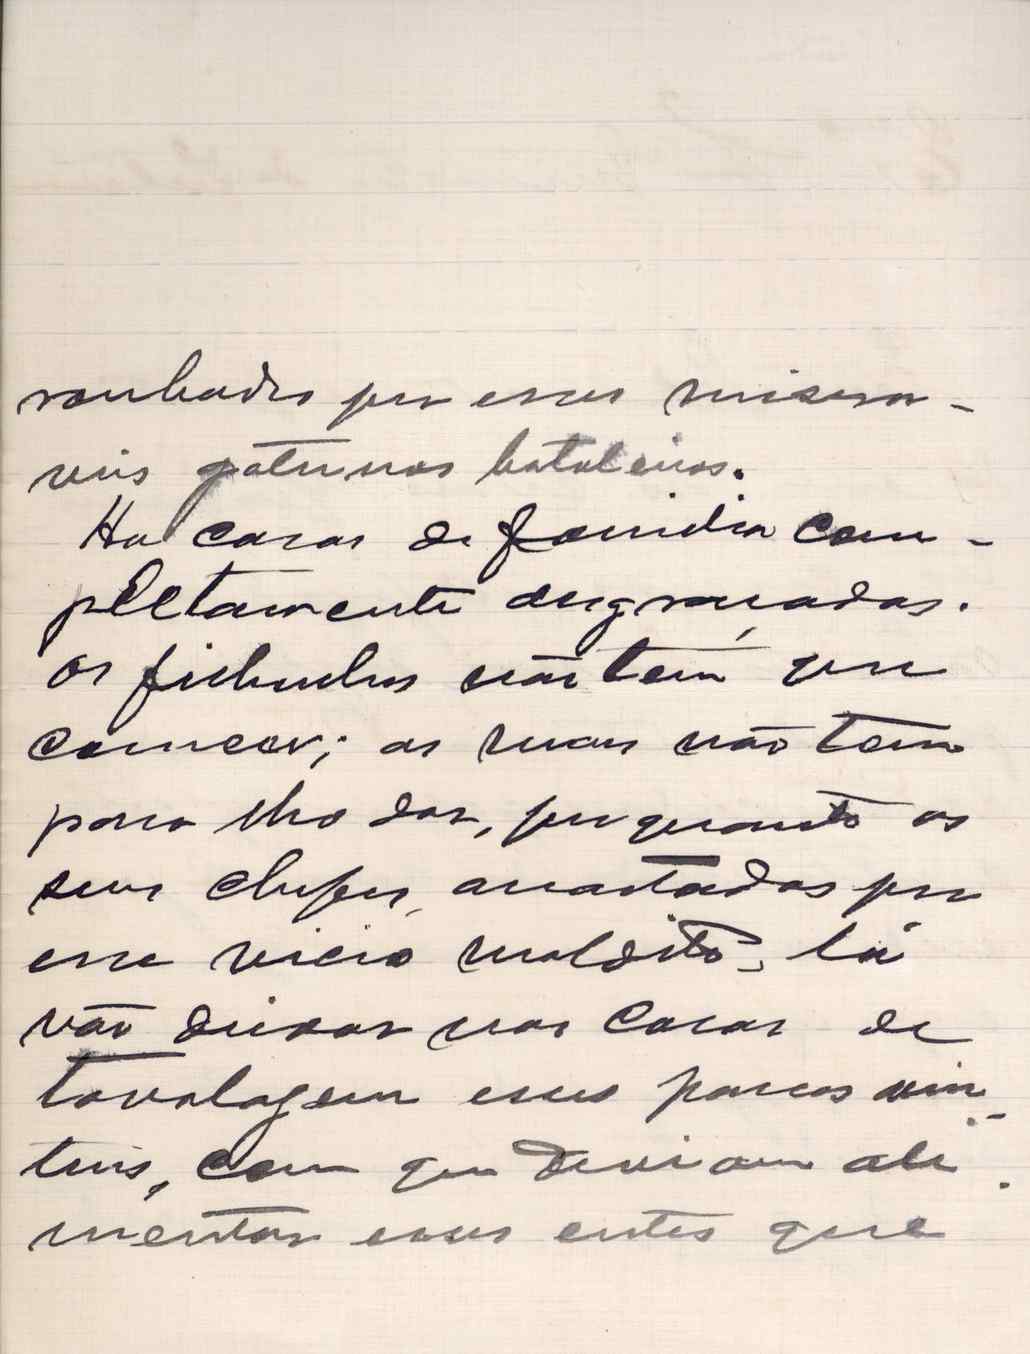 roubados por esses misera-
veis gatunos batoteiros.
Ha casas de familia com-
pletamente desgraçadas.
Os filhinhos não têm que
comer; as mães não tem
para lho dar, porquanto os
seus chefes, arrastados por
esse vicio maldito, lá
vão deixar nas casas de
tavolagem esses parcos vin-
tens, com que deviam ali-
mentar esses entes que